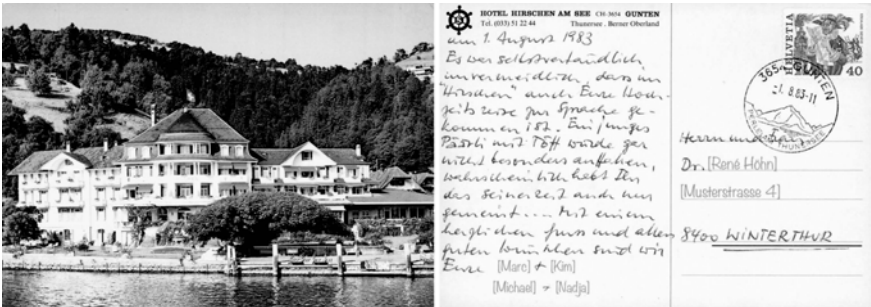 HOTEL HIRSCHEN AM SEE CH-3654 GUNTEN
Tel. (033) 51 22 44 Thunersee . Berner Oberland
am 1. August 1983
Es war selbstverständlich
unvermeidlich, dass im
"Hirschen" auch Eure Hoch-
zeitsreise zur Sprache ge-
kommen ist. Ein junges
Päärli mit Töff würde gar
nicht besonders auffallen,
wahrscheinlich habt Ihr
das seinerzeit auch nur
gemeint.... Mit einem
herzlichen Gruss und allen
guten Wünschen sind wir
Eure [Marc] + [Kim]
[Michael] + [Nadja]
HELVETIA
40
3654 GUNTEN
-1.8.83-11
THUNERSEE
Herrn und Frau
Dr. [René Höhn]
[Musterstrasse 4]
8400 WINTERTHUR